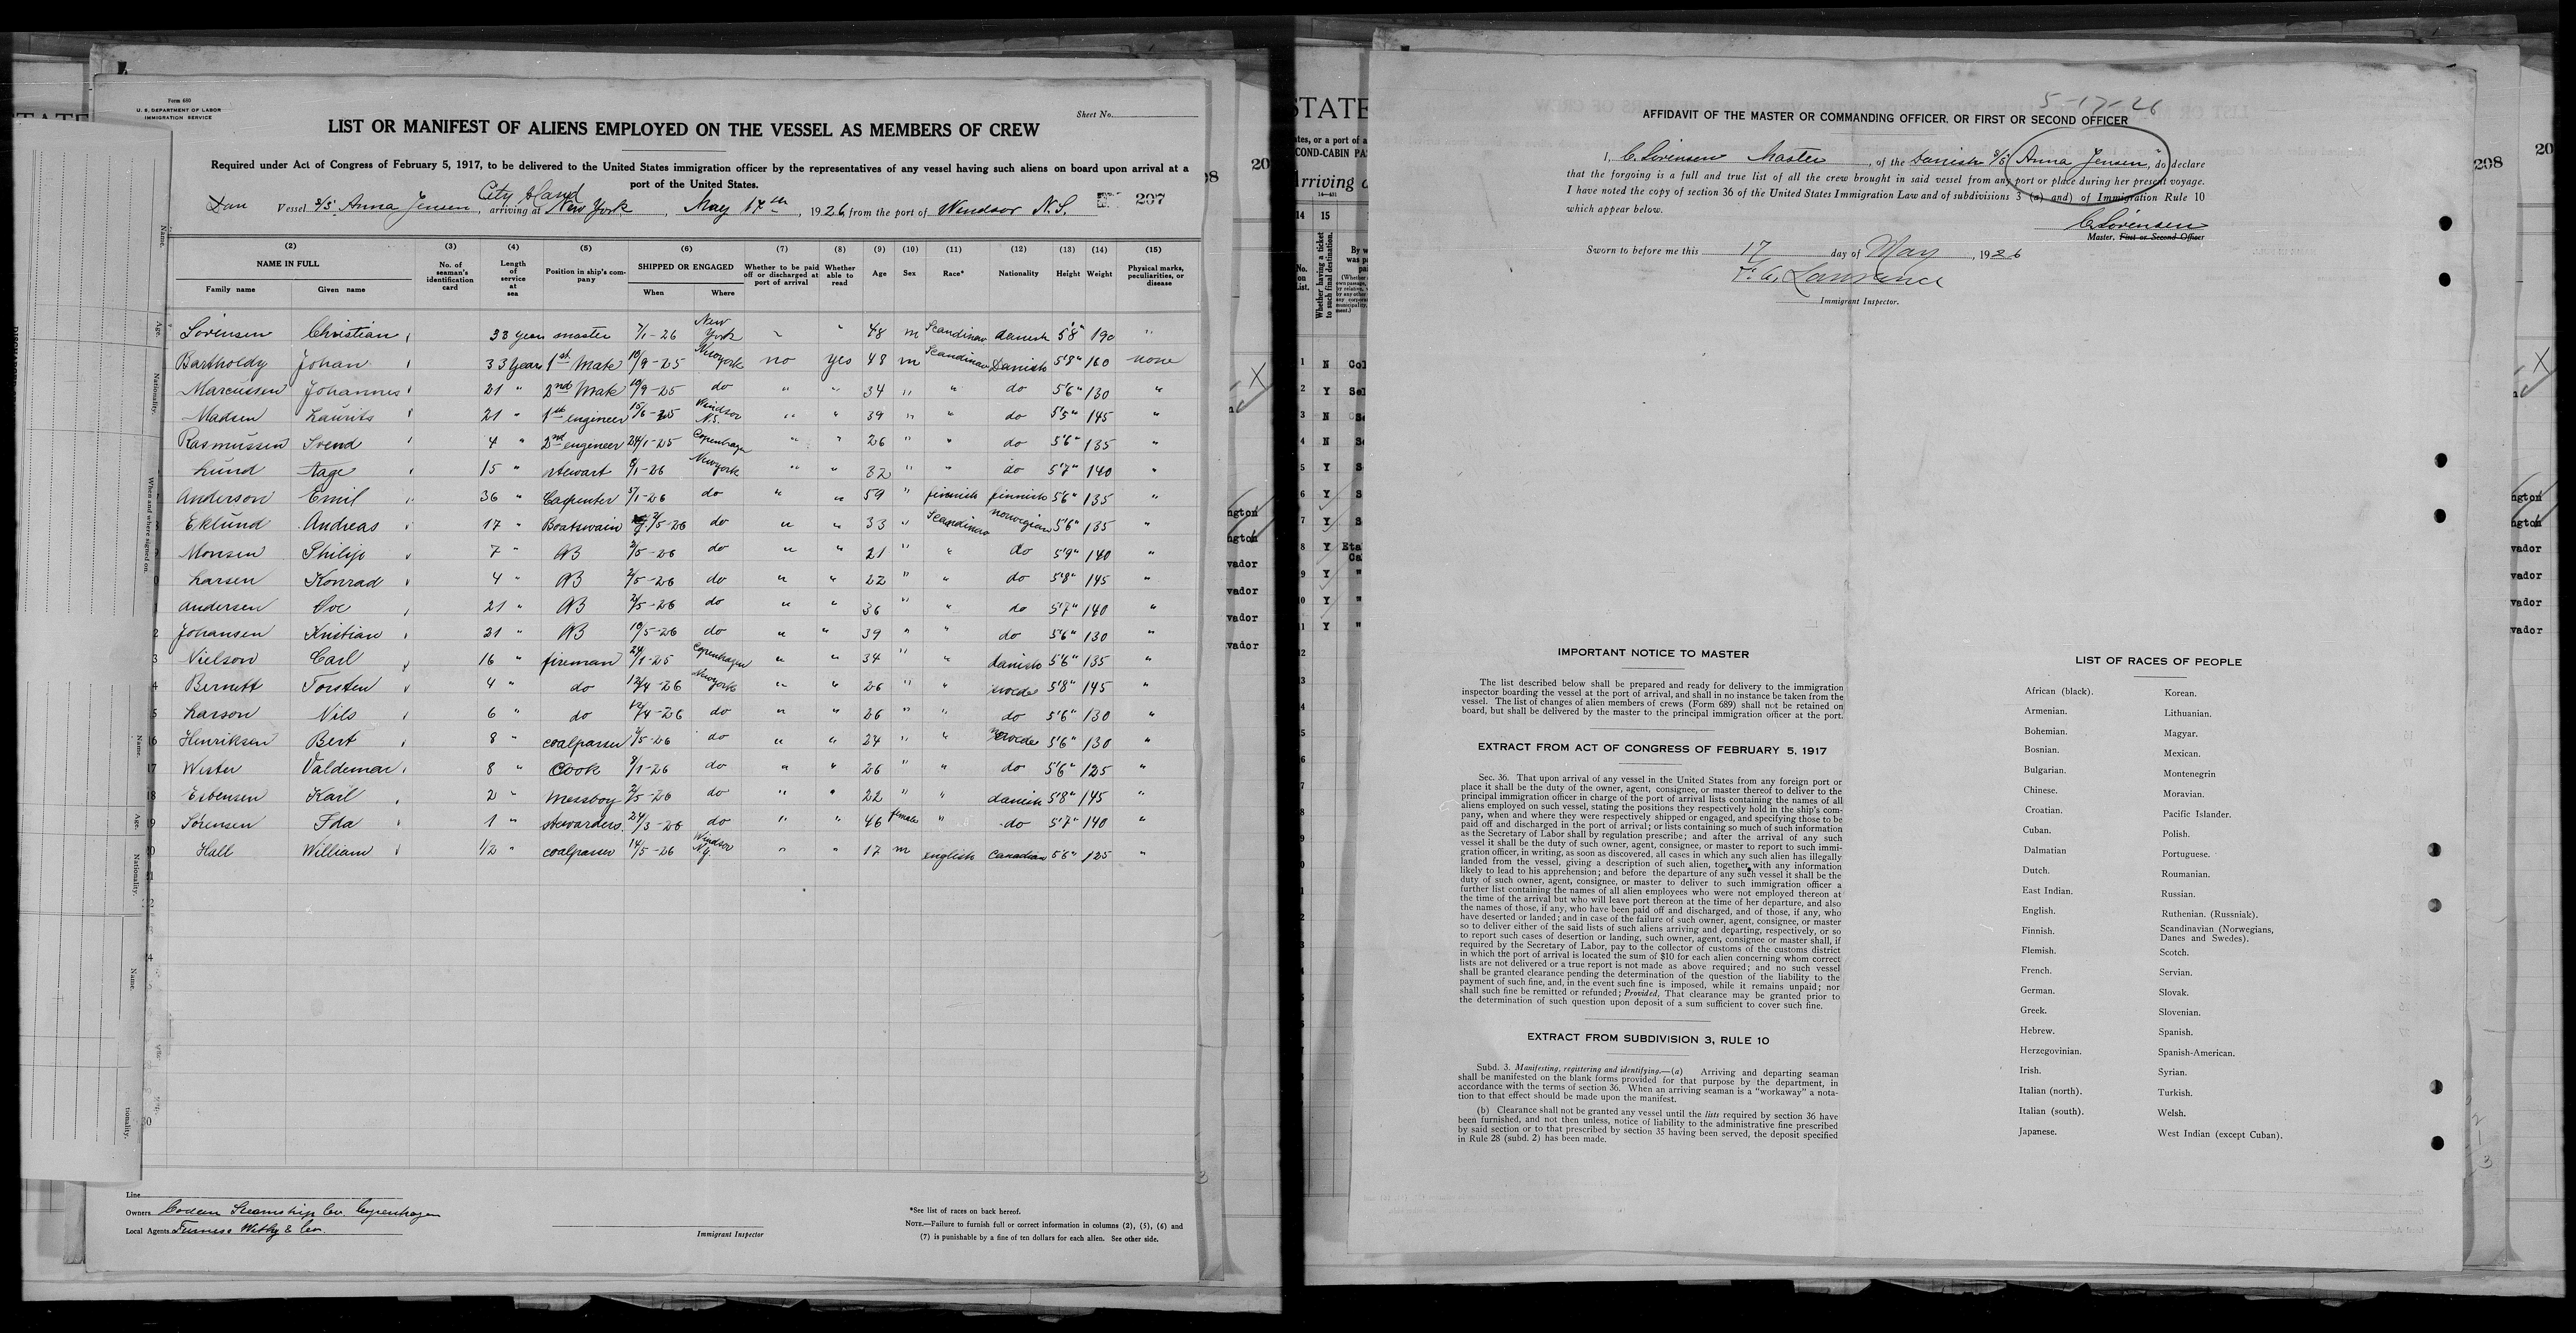 Form 689
U. S. DEPARTMENT OF LABOR
IMMIGRATION SERVICE
Sheet No.
LIST OR MANIFEST OF ALIENS EMPLOYED ON THE VESSEL AS MEMBERS OF CREW
Required under Act of Congress of February 5, 1917, to be delivered to the United States immigration officer by the representatives of any vessel having such aliens on board upon arrival at a
port of the United States.
City Island
Dan Vessel S/S Anna Jensen, arriving at New York, May 17th, 1926, from the port of Windsor N.S. 297
(2) (3) (4) (5) (6) (7) (8) (9) (10) (11) (12) (13) (14) (15)
NAME IN FULL No. of seaman's identification card Length of service at sea Position in ship's company SHIPPED OR ENGAGED Whether to be paid off or discharged at port of arrival Whether able to read Age Sex Race* Nationality Height Weight Physical marks, peculiarities, or disease
Family name Given name When Where
Sörensen Christian 33 years master 7/1-26 New York " " 48 m Scandinav danish 5'8" 190 "
Bartholdy Johan 33 Years 1st Mate 10/9-25 Newyork no yes 48 m Scandinav Danish 5'8" 160 none
Marcussen Johannes 21 " 2nd Mate 10/9-25 do " " 34 " " do 5'6" 130 "
Madsen Laurits 21 " 1st engineer 15/6-25 Windsor N.S. " " 39 " " do 5'5" 145 "
Rasmussen Svend 4 " 2nd engineer 24/1-25 Copenhagen " " 26 " " do 5'6" 135 "
Lund Aage 15 " stewart 8/1-26 Newyork " " 32 " " do 5'7" 140 "
Anderson Emil 36 " Carpenter 5/1-26 do " " 59 " finnish finnish 5'6" 135 "
Eklund Andreas 17 " Boatswain 2/5-26 do " " 33 " Scandinav norwegian 5'6" 135 "
Monsen Philip 7 " AB 2/5-26 do " " 21 " " do 5'9" 140 "
Larsen Konrad 4 " AB 2/5-26 do " " 22 " " do 5'8" 145 "
Andersen Ove 21 " AB 2/5-26 do " " 36 " " do 5'7" 140 "
Johansen Kristian 21 " AB 10/5-26 do " " 39 " " do 5'6" 130 "
Nielson Carl 16 " fireman 24/1-25 Copenhagen " " 34 " " danish 5'6" 135 "
Bernett Torsten 4 " do 12/4-26 Newyork " " 26 " " swede 5'8" 145 "
Larson Nils 6 " do 12/4-26 do " " 26 " " do 5'6" 130 "
Henriksen Bert 8 " coalpasser 2/5-26 do " " 24 " " swede 5'6" 130 "
Wester Valdemar 8 " Cook 8/1-26 do " " 26 " " do 5'6" 125 "
Esbensen Karl 2 " Messboy 2/5-26 do " " 22 " " danish 5'8" 145 "
Sörensen Ida 1 " stewardess 24/3-26 do " " 46 female " do 5'7" 140 "
Hall William 1/2 " coalpasser 14/5-26 Windsor " " 17 m english Canadian 5'6" 125 "
Line
Owners Steamship Co. Copenhagen
Local Agents Furness Withy & Co.
Immigrant Inspector
*See list of races on back hereof.
NOTE.—Failure to furnish full or correct information in columns (2), (5), (6) and
(7) is punishable by a fine of ten dollars for each alien. See other side.
5-17-26
AFFIDAVIT OF THE MASTER OR COMMANDING OFFICER, OR FIRST OR SECOND OFFICER
I, C. Sörensen Master, of the Danish S/S "Anna Jensen", do declare
that the forgoing is a full and true list of all the crew brought in said vessel from any port or place during her present voyage.
I have noted the copy of section 36 of the United States Immigration Law and of subdivisions 3 (a) and) of Immigration Rule 10
which appear below.
C. Sörensen
Master, First or Second Officer
Sworn to before me this 17 day of May, 1926
Lawrence
Immigrant Inspector.
208
IMPORTANT NOTICE TO MASTER
The list described below shall be prepared and ready for delivery to the immigration
inspector boarding the vessel at the port of arrival, and shall in no instance be taken from the
vessel. The list of changes of alien members of crews (Form 689) shall not be retained on
board, but shall be delivered by the master to the principal immigration officer at the port.
EXTRACT FROM ACT OF CONGRESS OF FEBRUARY 5, 1917
Sec. 36. That upon arrival of any vessel in the United States from any foreign port or
place it shall be the duty of the owner, agent, consignee, or master thereof to deliver to the
principal immigration officer in charge of the port of arrival lists containing the names of all
aliens employed on such vessel, stating the positions they respectively hold in the ship's com-
pany, when and where they were respectively shipped or engaged, and specifying those to be
paid off and discharged in the port of arrival; or lists containing so much of such information
as the Secretary of Labor shall by regulation prescribe; and after the arrival of any such
vessel it shall be the duty of such owner, agent, consignee, or master to report to such immi-
gration officer, in writing, as soon as discovered, all cases in which any such alien has illegally
landed from the vessel, giving a description of such alien, together with any information
likely to lead to his apprehension; and before the departure of any such vessel it shall be the
duty of such owner, agent, consignee, or master to deliver to such immigration officer a
further list containing the names of all alien employees who were not employed thereon at
the time of the arrival but who will leave port thereon at the time of her departure, and also
the names of those, if any, who have been paid off and discharged, and of those, if any, who
have deserted or landed; and in case of the failure of such owner, agent, consignee, or master
so to deliver either of the said lists of such aliens arriving and departing, respectively, or so
to report such cases of desertion or landing, such owner, agent, consignee or master shall, if
required by the Secretary of Labor, pay to the collector of customs of the customs district
in which the port of arrival is located the sum of $10 for each alien concerning whom correct
lists are not delivered or a true report is not made as above required; and no such vessel
shall be granted clearance pending the determination of the question of the liability to the
payment of such fine, and, in the event such fine is imposed, while it remains unpaid; nor
shall such fine be remitted or refunded; Provided, That clearance may be granted prior to
the determination of such question upon deposit of a sum sufficient to cover such fine.
EXTRACT FROM SUBDIVISION 3, RULE 10
Subd. 3. Manifesting, registering and identifying.—(a) Arriving and departing seaman
shall be manifested on the blank forms provided for that purpose by the department, in
accordance with the terms of section 36. When an arriving seaman is a "workaway" a nota-
tion to that effect should be made upon the manifest.
(b) Clearance shall not be granted any vessel until the lists required by section 36 have
been furnished, and not then unless, notice of liability to the administrative fine prescribed
by said section or to that prescribed by section 35 having been served, the deposit specified
in Rule 28 (subd. 2) has been made.
LIST OF RACES OF PEOPLE
African (black).
Armenian.
Bohemian.
Bosnian.
Bulgarian.
Chinese.
Croatian.
Cuban.
Dalmatian
Dutch.
East Indian.
English.
Finnish.
Flemish.
French.
German.
Greek.
Hebrew.
Herzegovinian.
Irish.
Italian (north).
Italian (south).
Japanese.
Korean.
Lithuanian.
Magyar.
Mexican.
Montenegrin
Moravian.
Pacific Islander.
Polish.
Portuguese.
Roumanian.
Russian.
Ruthenian. (Russniak).
Scandinavian (Norwegians,
Danes and Swedes).
Scotch.
Servian.
Slovak.
Slovenian.
Spanish.
Spanish-American.
Syrian.
Turkish.
Welsh.
West Indian (except Cuban).